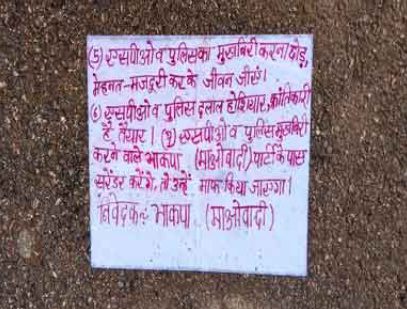 (5) एसपीओ व पुलिसका मुखबिरी करना छोड़,
मेहनत-मजदूरी कर के जीवन जीएं।
(6) एसपीओ व पुलिस दलाल होशियार, क्रांतिकारी
है तैयार। (7) एसपीओ व पुलिस मुखबिरी
करने वाले भाकपा (माओवादी) पार्टी के पास
सरेंडर करेंगे, तो उन्हें माफ किया जाएगा।
निवेदक:- भाकपा (माओवादी)